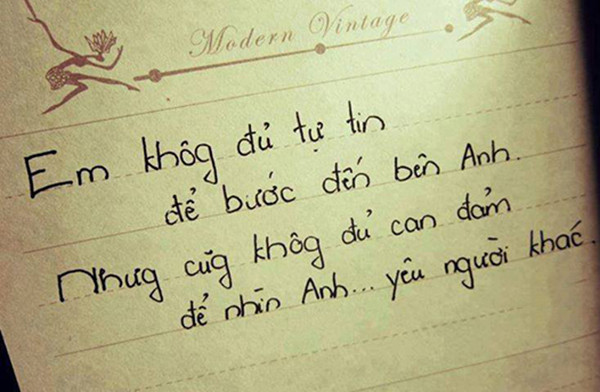 Modern Vintage
Em khôg đủ tự tin
để bước đến bên Anh.
Nhưg cũg khôg đủ can đảm
để nhìn Anh... yêu người khác.